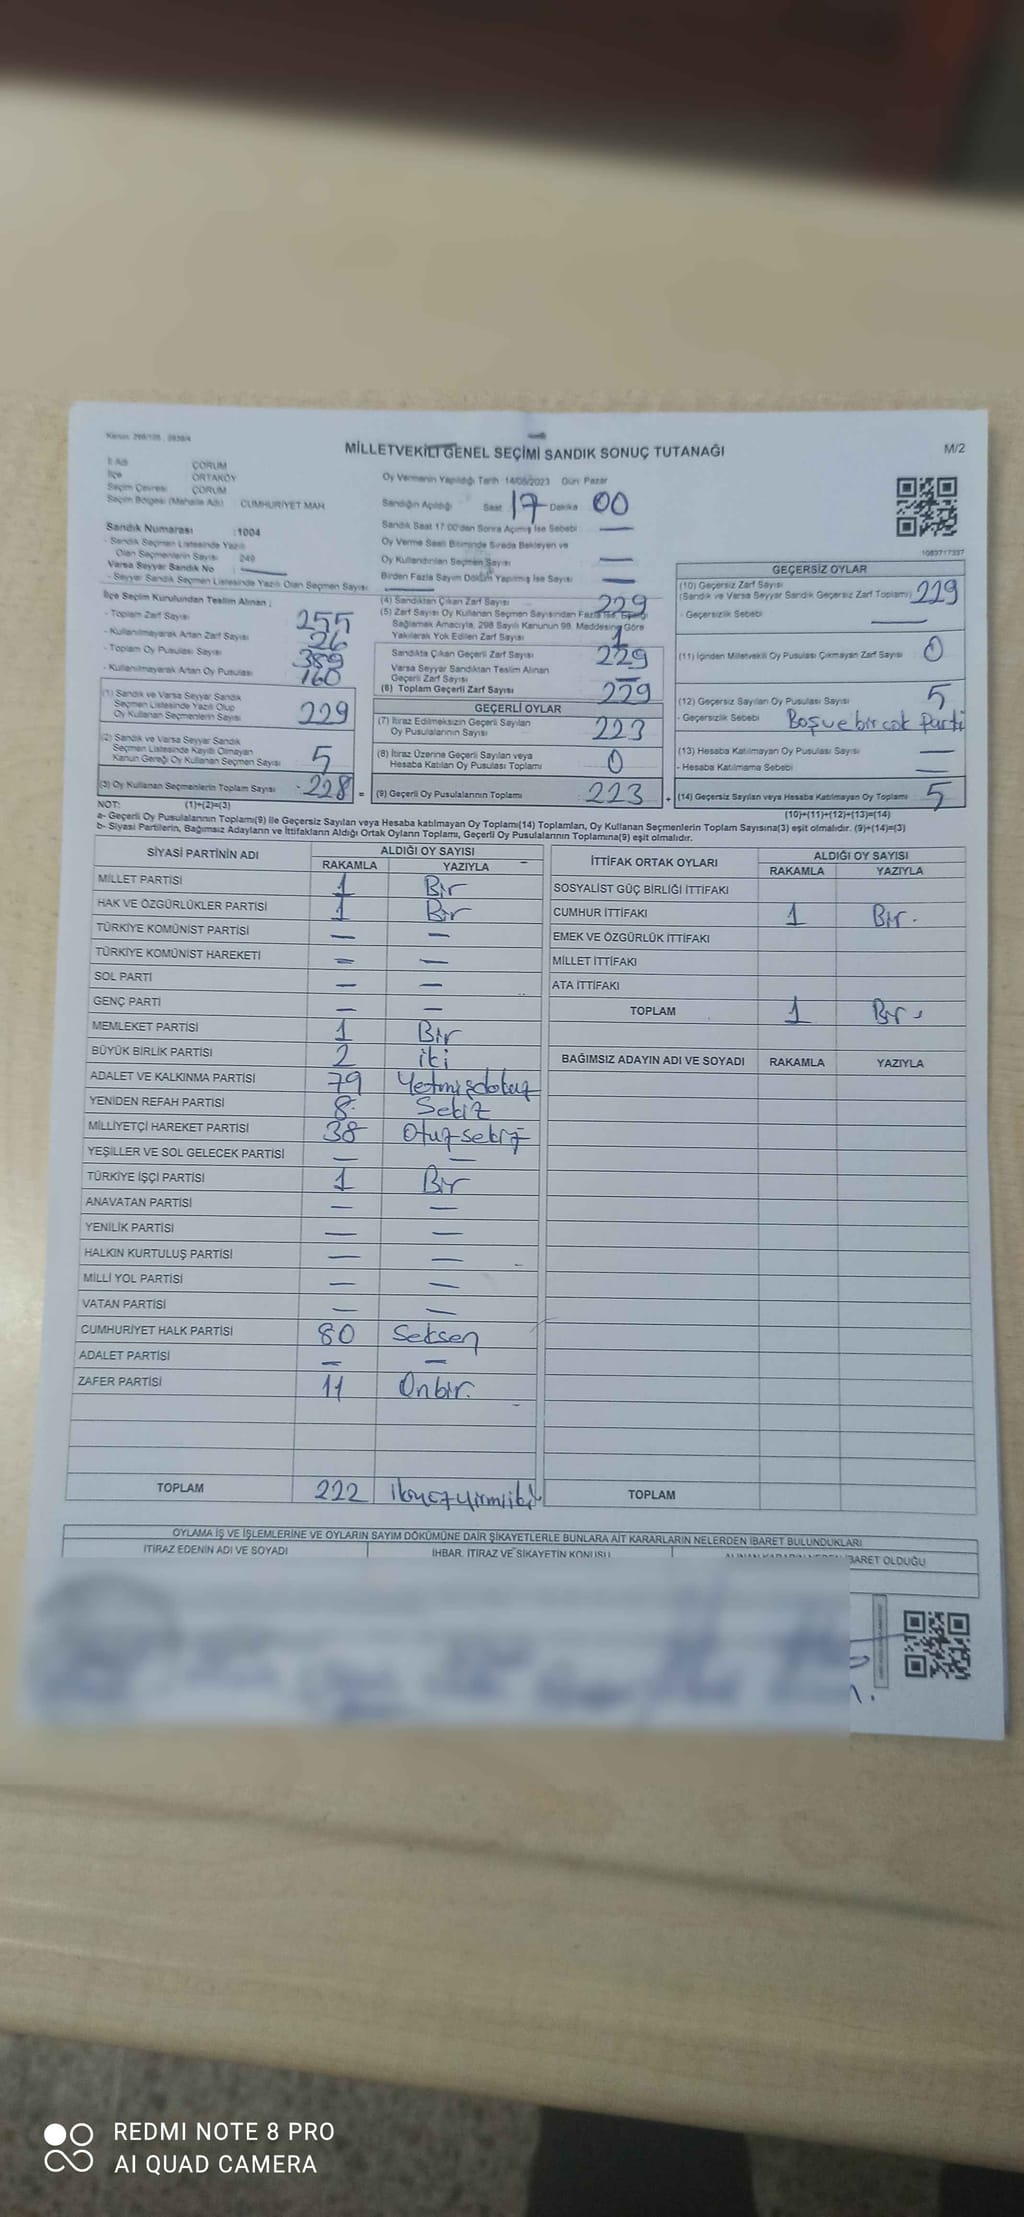 MİLLETVEKİLİ GENEL SEÇİMİ SANDIK SONUÇ TUTANAĞI
M/2
İl Adı ÇORUM
İlçe ORTAKÖY
Seçim Çevresi ÇORUM
Seçim Bölgesi (Mahalle Adı) CUMHURİYET MAH
Sandık Numarası :1004
- Sandık Seçmen Listesinde Yazılı
Olan Seçmenlerin Sayısı 249
Varsa Seyyar Sandık No
- Seyyar Sandık Seçmen Listesinde Yazılı Olan Seçmen Sayısı
Oy Vermenin Yapıldığı Tarih 14/05/2023 Gün Pazar
Sandığın Açıldığı Saat 17 Dakika 00
Sandık Saat 17:00'dan Sonra Açılmış İse Sebebi
Oy Verme Saati Bitiminde Sırada Bekleyen ve
Oy Kullandırılan Seçmen Sayısı
Birden Fazla Sayım Döküm Yapılmış İse Sayısı
1083717337
İlçe Seçim Kurulundan Teslim Alınan ;
- Toplam Zarf Sayısı 255
- Kullanılmayarak Artan Zarf Sayısı 26
- Toplam Oy Pusulası Sayısı 389
- Kullanılmayarak Artan Oy Pusulası 160
(1) Sandık ve Varsa Seyyar Sandık
Seçmen Listesinde Yazılı Olup
Oy Kullanan Seçmenlerin Sayısı 229
(2) Sandık ve Varsa Seyyar Sandık
Seçmen Listesinde Kayıtlı Olmayan
Kanun Gereği Oy Kullanan Seçmen Sayısı 5
(3) Oy Kullanan Seçmenlerin Toplam Sayısı 228 =
(4) Sandıktan Çıkan Zarf Sayısı 229
(5) Zarf Sayısı Oy Kullanan Seçmen Sayısından Fazla İse,
Sağlamak Amacıyla, 298 Sayılı Kanunun 98. Maddesine Göre
Yakılarak Yok Edilen Zarf Sayısı 1
Sandıkta Çıkan Geçerli Zarf Sayısı 229
Varsa Seyyar Sandıktan Teslim Alınan
Geçerli Zarf Sayısı
(6) Toplam Geçerli Zarf Sayısı 229
GEÇERLİ OYLAR
(7) İtiraz Edilmeksizin Geçerli Sayılan
Oy Pusulalarının Sayısı 223
(8) İtiraz Üzerine Geçerli Sayılan veya
Hesaba Katılan Oy Pusulası Toplamı 0
(9) Geçerli Oy Pusulalarının Toplamı 223 +
GEÇERSİZ OYLAR
(10) Geçersiz Zarf Sayısı
(Sandık ve Varsa Seyyar Sandık Geçersiz Zarf Toplamı) 229
- Geçersizlik Sebebi
(11) İçinden Milletvekili Oy Pusulası Çıkmayan Zarf Sayısı 0
(12) Geçersiz Sayılan Oy Pusulası Sayısı 5
- Geçersizlik Sebebi Boş ve bir çok parti
(13) Hesaba Katılmayan Oy Pusulası Sayısı
- Hesaba Katılmama Sebebi
(14) Geçersiz Sayılan veya Hesaba Katılmayan Oy Toplamı 5
NOT: (1)+(2)=(3) (10)+(11)+(12)+(13)=(14)
a- Geçerli Oy Pusulalarının Toplamı(9) ile Geçersiz Sayılan veya Hesaba katılmayan Oy Toplamı(14) Toplamları, Oy Kullanan Seçmenlerin Toplam Sayısına(3) eşit olmalıdır. (9)+(14)=(3)
b- Siyasi Partilerin, Bağımsız Adayların ve İttifakların Aldığı Ortak Oyların Toplamı, Geçerli Oy Pusulalarının Toplamına(9) eşit olmalıdır.
SİYASİ PARTİNİN ADI ALDIĞI OY SAYISI
RAKAMLA YAZIYLA
MİLLET PARTİSİ 1 Bir
HAK VE ÖZGÜRLÜKLER PARTİSİ 1 Bir
TÜRKİYE KOMÜNİST PARTİSİ — —
TÜRKİYE KOMÜNİST HAREKETİ — —
SOL PARTİ — —
GENÇ PARTİ — —
MEMLEKET PARTİSİ 1 Bir
BÜYÜK BİRLİK PARTİSİ 2 iki
ADALET VE KALKINMA PARTİSİ 79 Yetmişdokuz
YENİDEN REFAH PARTİSİ 8 Sekiz
MİLLİYETÇİ HAREKET PARTİSİ 38 Otuzsekiz
YEŞİLLER VE SOL GELECEK PARTİSİ — —
TÜRKİYE İŞÇİ PARTİSİ 1 Bir
ANAVATAN PARTİSİ — —
YENİLİK PARTİSİ — —
HALKIN KURTULUŞ PARTİSİ — —
MİLLİ YOL PARTİSİ — —
VATAN PARTİSİ — —
CUMHURİYET HALK PARTİSİ 80 Seksen
ADALET PARTİSİ — —
ZAFER PARTİSİ 11 Onbir.
TOPLAM 222 ikiyüzyirmiiki
İTTİFAK ORTAK OYLARI ALDIĞI OY SAYISI
RAKAMLA YAZIYLA
SOSYALİST GÜÇ BİRLİĞİ İTTİFAKI
CUMHUR İTTİFAKI 1 Bir.
EMEK VE ÖZGÜRLÜK İTTİFAKI
MİLLET İTTİFAKI
ATA İTTİFAKI
TOPLAM 1 Bir.
BAĞIMSIZ ADAYIN ADI VE SOYADI RAKAMLA YAZIYLA
TOPLAM
OYLAMA İŞ VE İŞLEMLERİNE VE OYLARIN SAYIM DÖKÜMÜNE DAİR ŞİKAYETLERLE BUNLARA AİT KARARLARIN NELERDEN İBARET BULUNDUKLARI
İTİRAZ EDENİN ADI VE SOYADI
İHBAR, İTİRAZ VE ŞİKAYETİN KONUSU
İBARET OLDUĞU
REDMI NOTE 8 PRO
AI QUAD CAMERA